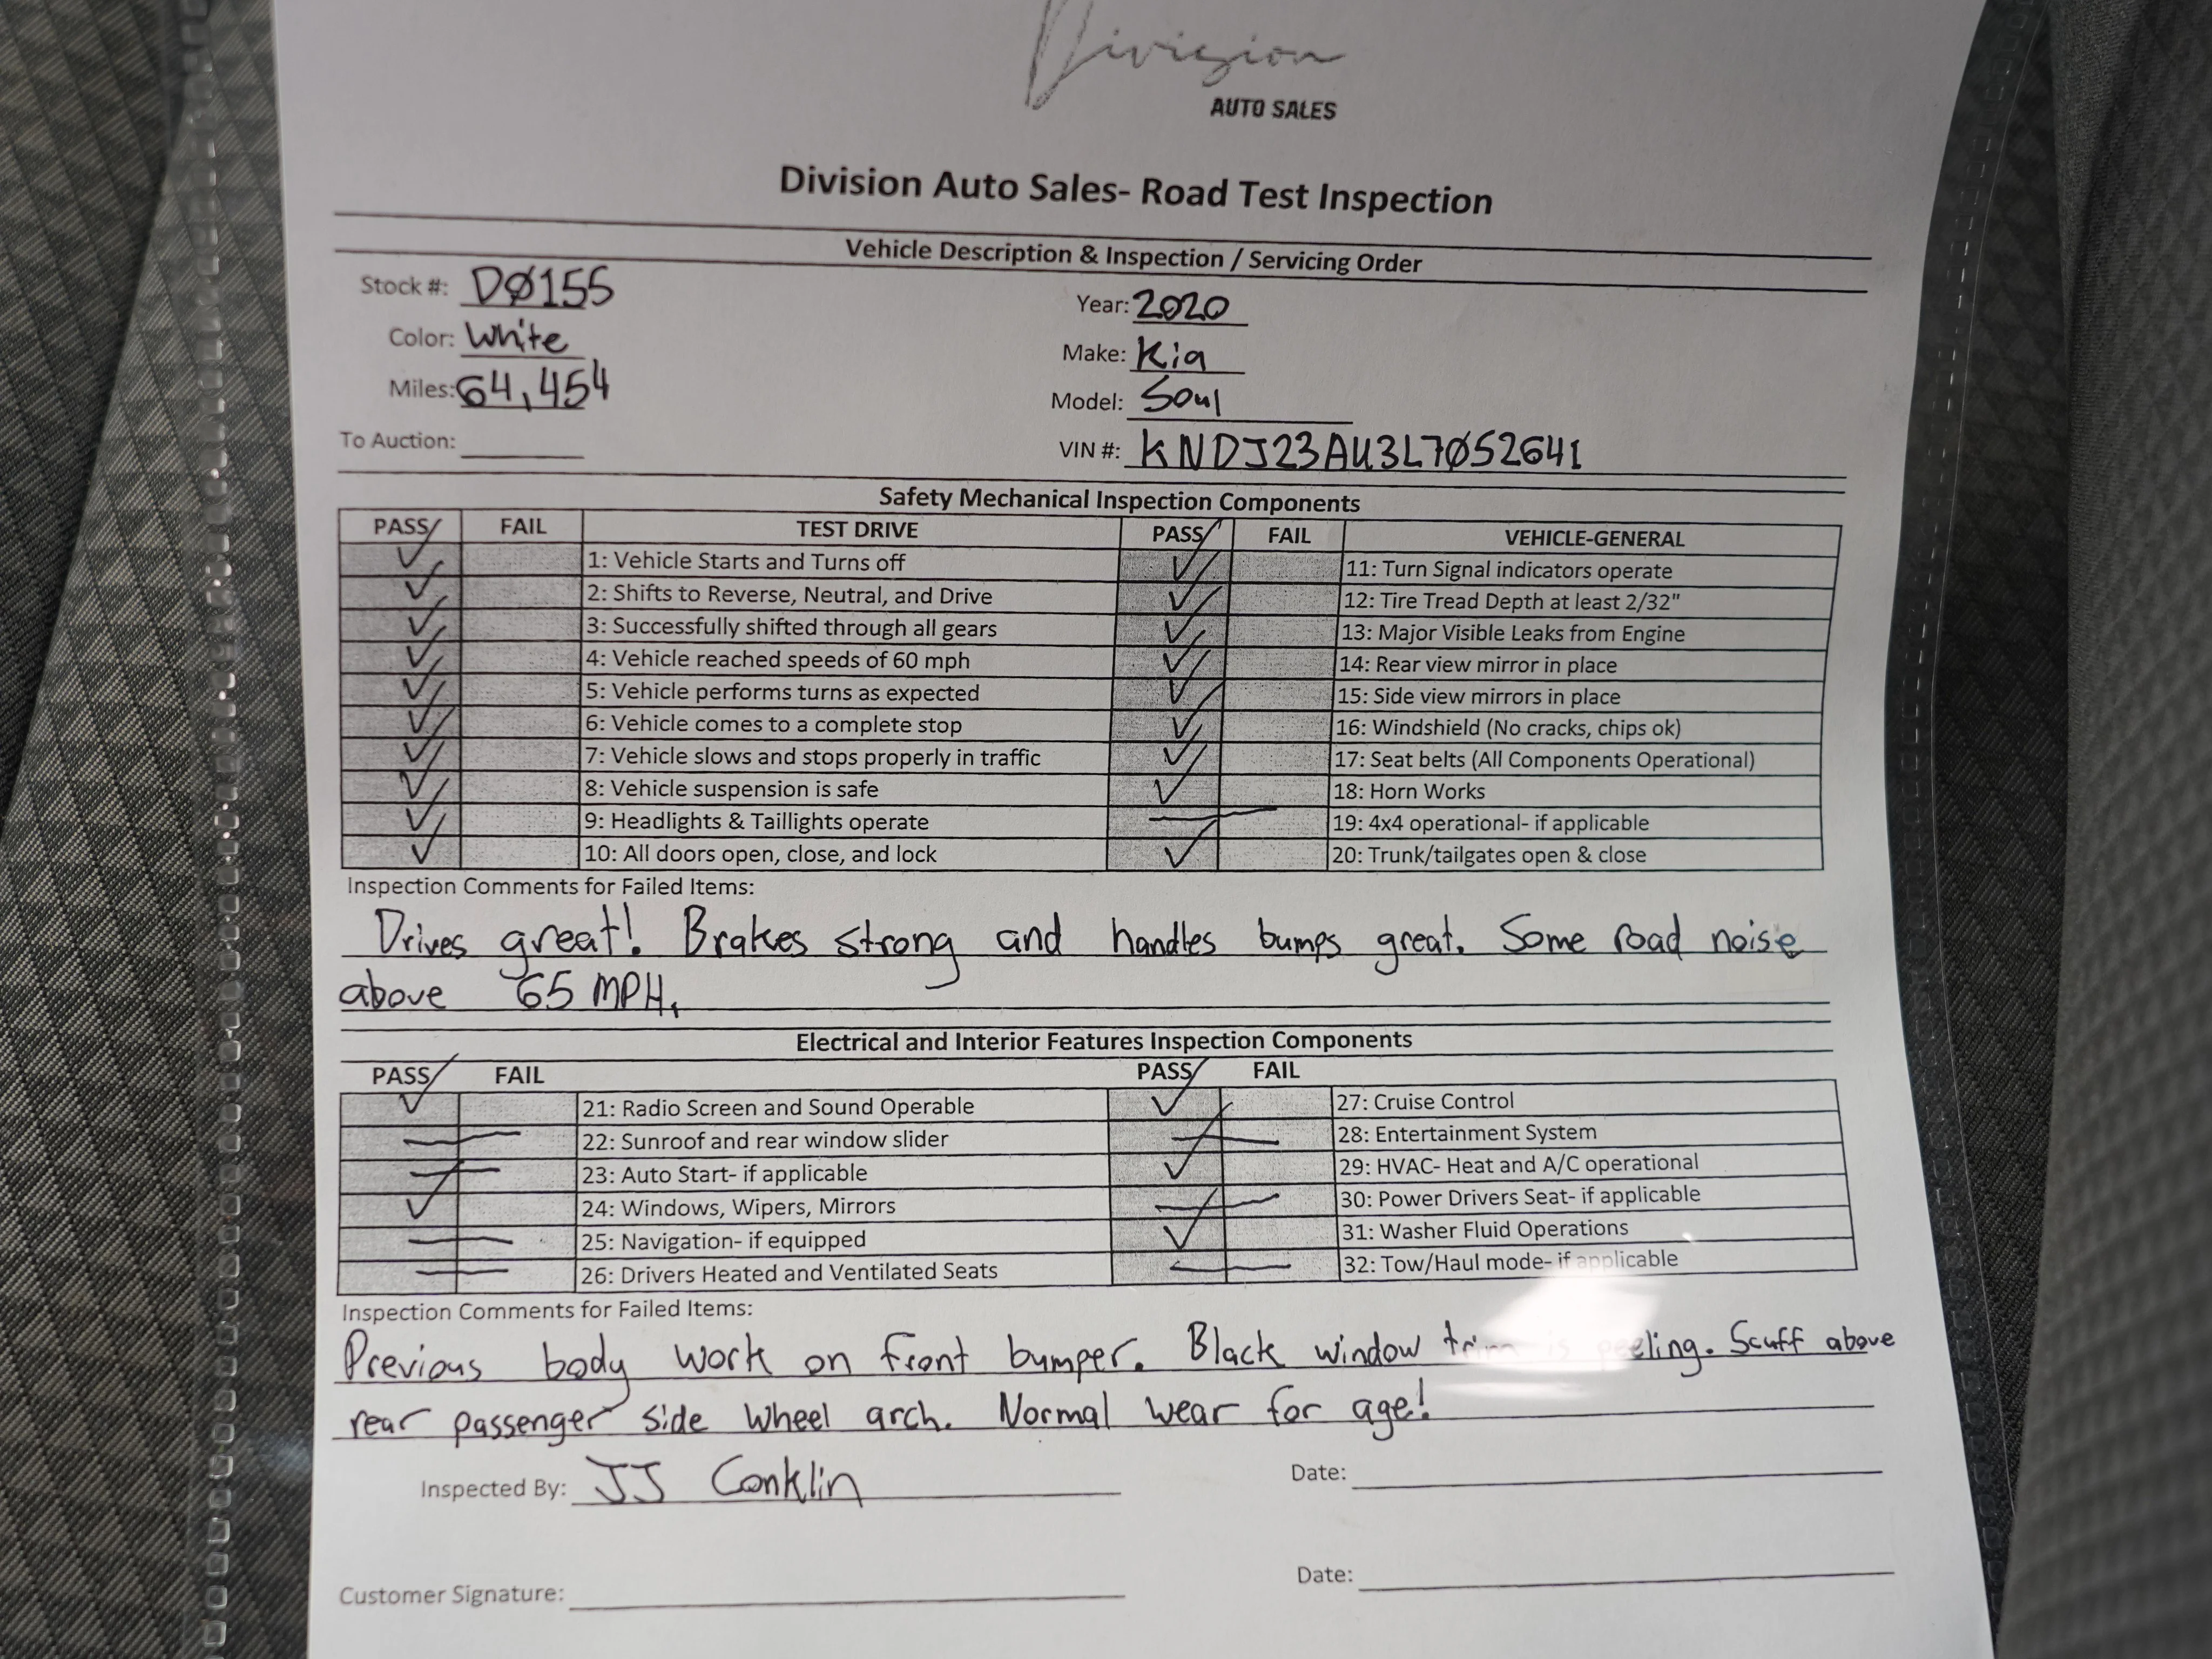 Division
AUTO SALES
Division Auto Sales- Road Test Inspection
Vehicle Description & Inspection / Servicing Order
Stock #: DØ155
Year: 2020
Color: White
Make: Kia
Miles: 64,454
Model: Soul
To Auction:
VIN #: KNDJ23AU3L7Ø52641
Safety Mechanical Inspection Components
PASS FAIL TEST DRIVE PASS FAIL VEHICLE-GENERAL
1: Vehicle Starts and Turns off 11: Turn Signal indicators operate
2: Shifts to Reverse, Neutral, and Drive 12: Tire Tread Depth at least 2/32"
3: Successfully shifted through all gears 13: Major Visible Leaks from Engine
4: Vehicle reached speeds of 60 mph 14: Rear view mirror in place
5: Vehicle performs turns as expected 15: Side view mirrors in place
6: Vehicle comes to a complete stop 16: Windshield (No cracks, chips ok)
7: Vehicle slows and stops properly in traffic 17: Seat belts (All Components Operational)
8: Vehicle suspension is safe 18: Horn Works
9: Headlights & Taillights operate 19: 4x4 operational- if applicable
10: All doors open, close, and lock 20: Trunk/tailgates open & close
Inspection Comments for Failed Items:
Drives great! Brakes strong and handles bumps great. Some road noise
above 65 MPH.
Electrical and Interior Features Inspection Components
PASS FAIL PASS FAIL
21: Radio Screen and Sound Operable 27: Cruise Control
22: Sunroof and rear window slider 28: Entertainment System
23: Auto Start- if applicable 29: HVAC- Heat and A/C operational
24: Windows, Wipers, Mirrors 30: Power Drivers Seat- if applicable
25: Navigation- if equipped 31: Washer Fluid Operations
26: Drivers Heated and Ventilated Seats 32: Tow/Haul mode- if applicable
Inspection Comments for Failed Items:
Previous body work on front bumper. Black window trim is peeling. Scuff above
rear passenger side wheel arch. Normal wear for age!
Inspected By: JJ Conklin Date:
Customer Signature: Date: